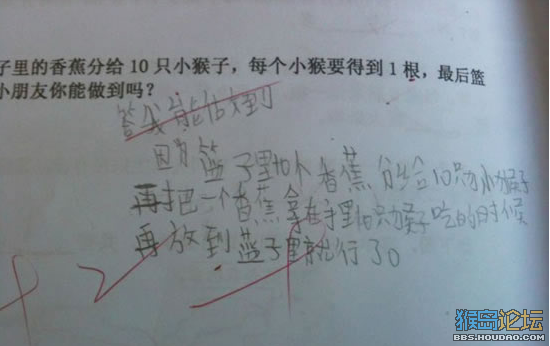 子里的香蕉分给10只小猴子，每个小猴要得到1根，最后篮
小朋友你能做到吗？
答我能做到
因为篮子里10个香蕉分给10只小猴子
再把一个香蕉拿在手里10只猴子吃的时候
再放到蓝子里就行了。
猴岛论坛
BBS.HOUDAO.COM